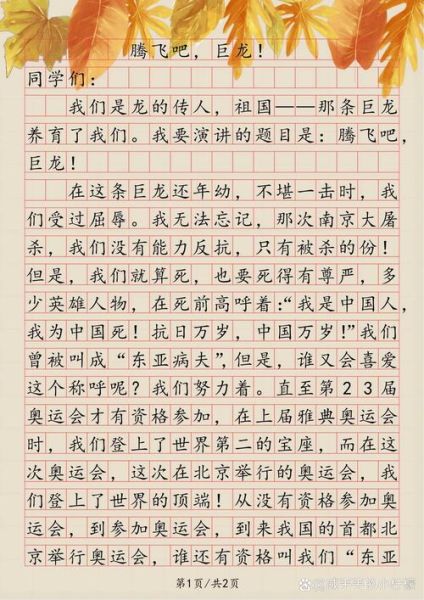 腾飞吧，巨龙！
同学们：
我们是龙的传人，祖国——那条巨龙
养育了我们。我要演讲的题目是：腾飞吧，
巨龙！
在这条巨龙还年幼，不堪一击时，我
们受过屈辱。我无法忘记，那次南京大屠
杀，我们没有能力反抗，只有被杀的份！
但是，我们就算死，也要死得有尊严，多
少英雄人物，在死前高呼着：“我是中国人，
我为中国死！抗日万岁，中国万岁！”我们
曾被叫成“东亚病夫”，但是，谁又会喜爱
这个称呼呢？我们努力着。直至第23届
奥运会才有资格参加，在上届雅典奥运会
时，我们登上了世界第二的宝座，而在这
次奥运会，这次在北京举行的奥运会，我
们登上了世界的顶端！从没有资格参加奥
运会，到参加奥运会，到来我国的首都北
京举行奥运会，谁还有资格叫我们“东亚
第1页/共2页